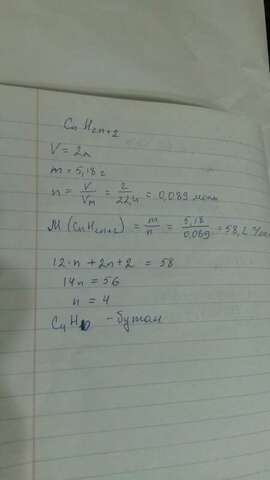 CnH2n+2
V = 2л
m = 5,18 г
n = V/Vm = 2/22,4 = 0,089 моль
M (CnH2n+2) = m/n = 5,18/0,089 = 58,2 г/моль
12·n + 2n+2 = 58
14n = 56
n = 4
C4H10 - бутан